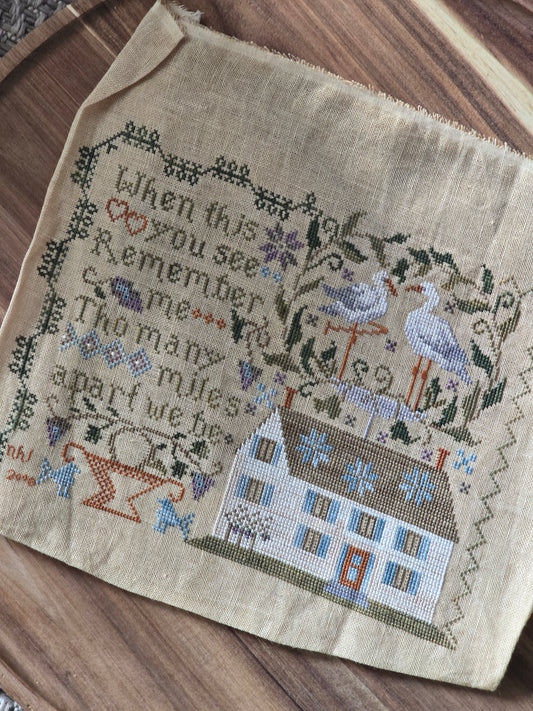 When this
you see
Remember
me
Tho many
miles
apart we be
nhl